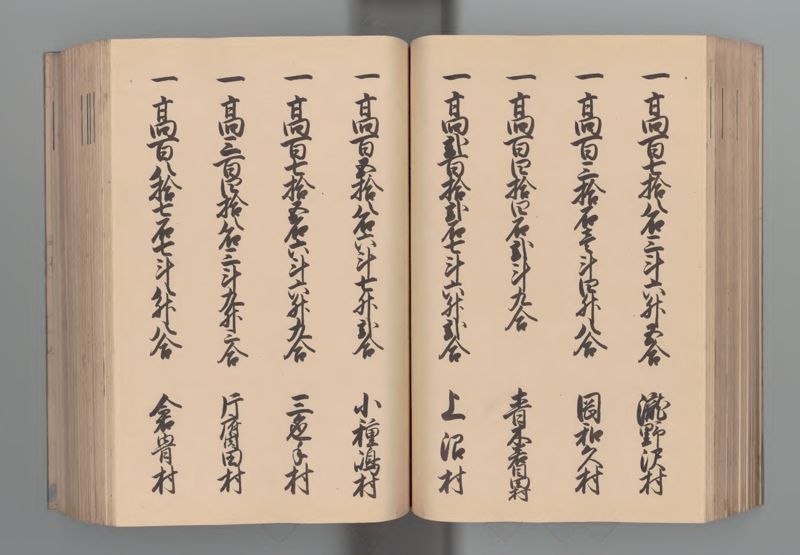 一 高百七拾八石三斗六升五合 瀧野沢村
一 高百三拾石壱斗四升八合 岡和久村
一 高百四拾四石弐斗九合 青木若田村
一 高弐百拾弐石七斗六升弐合 上沼村
一 高百五拾八石六斗七升弐合 小種嶋村
一 高百七拾五石六斗六升九合 村
一 高三百四拾八石三斗九升二合 片府田村
一 高百八拾七石七斗八升八合 倉骨村